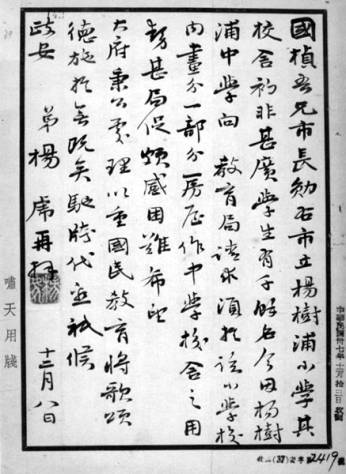 國楨吾兄市長勛右市立楊樹浦小學其
校舍初非甚廣學生有千餘名今因楊樹
浦中學向 教育局請求須於該小學校
內畫分一部分房屋作中學校舍之用
勢甚局促頗感困難希望
大府秉公處理以重國民教育將歌頌
德施於無既矣馳牋代面祇候
政安 弟楊虎再拜 十二月八日
嘯天用牋
(37)字第2419號